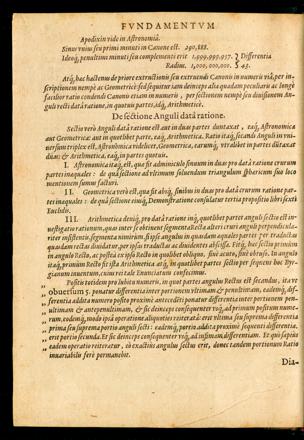 FVNDAMENTVM
Apodixin vide in Astronomiâ.
Sinus unius seu primi minuti in Canone est. 290,888.
Ideoq́, penultimus minuti seu complementi erit 1.999.999.957. } Differentia
Radius. 2,000,000,000. } 43.
Atq́, hac hactenus de priore extructionis seu extruendi Canonis in numeris viâ, per in-
scriptionem nempè ac Geometricè: sequitur iam deinceps alia quadam peculiaris ac longè
facilior ratio condendi Canonis etiam in numeris, per sectionem nempè seu divisionem An-
guli recti datâ ratione, in quotuis partes, idq́, Arithmeticè.
De sectione Anguli data ratione.
Sectio verò Anguli datâ ratione est aut in duas partes duntaxat, eaq́, Astronomica
aut Geometrica: aut in quotlibet partes, eaq́, Arithmetica. Ratio itaq́, secandi Anguli in uni-
versum triplex est. Astronomica videlicet, Geometrica, earumq́, utralibet in partes duntaxat
duas; & Arithmetica, eaq́, in partes quotuis.
I. Astronomica itaq́, est, qua fit adminiculo sinuum in duas pro datâ ratione crurum
partes inaquales: de quâ sectione ad ultimum soluendum triangulum sphæricum suo loco
mentionem sumus facturi.
II. Geometrica verò est, qua fit absq́, sinibus in duas pro datâ crurum ratione par-
tes inaquales: de quâ sectione eiusq́, Demonstratione consulatur tertia propositio libri sexti
Euclidis.
III. Arithmetica deniq́, pro datâ ratione in quotlibet partes anguli sectio est in-
vestigatio rationum, quas inter se obtinent segmenta Rectæ alteri crurum angus perpendicula-
riter insistentis, segmenta nimirum, si ipse angulus in quasdam aquales partes per traductas
quasdam rectas dividatur, per ipsas traductas ac dividentes abscissa. Fitq́, hac sectio primùm
in angulo Recto, ac posteà ex ipso Recto in quotlibet obliquo, sive acuto, sive obtuso. In angulo
itaq́, primùm Recto sit ipsa Arithmetica, eaq́, in quotlibet partes sectio per sequens hoc Byr-
gianum inventum, cuius rei tale Enunciatum confecimus.
„ Positis totidem pro lubitu numeris, in quot partes angulus Rectus est secandus, ita ve
„ obversum 5. ponatur differentia inter portionem ultimam & penultimam, easdemq́, dif-
„ ferentia addita numero posito proximè antecedenti ponatur differentia inter portionem pen-
„ ultimam & antepenultimam, & sic deinceps consequenter vsq́, ad primum positum nume-
„ rum, eademq́, modo ipsa operatione aliquoties reiterata: erit ultima seu suprema differentia
„ prima seu suprema portio anguli secti: eademq́, portio addita proximè sequenti differentia,
„ erit portio secunda. Et sic deinceps consequenter vsq́, ad infimam differentiam. Et quò sæpiùs
„ eadem operatio reiteratur, eò exactiùs angulus sectus erit, donec tandem portionum Ratio
invariabilis ferè permanebit.
Dia-